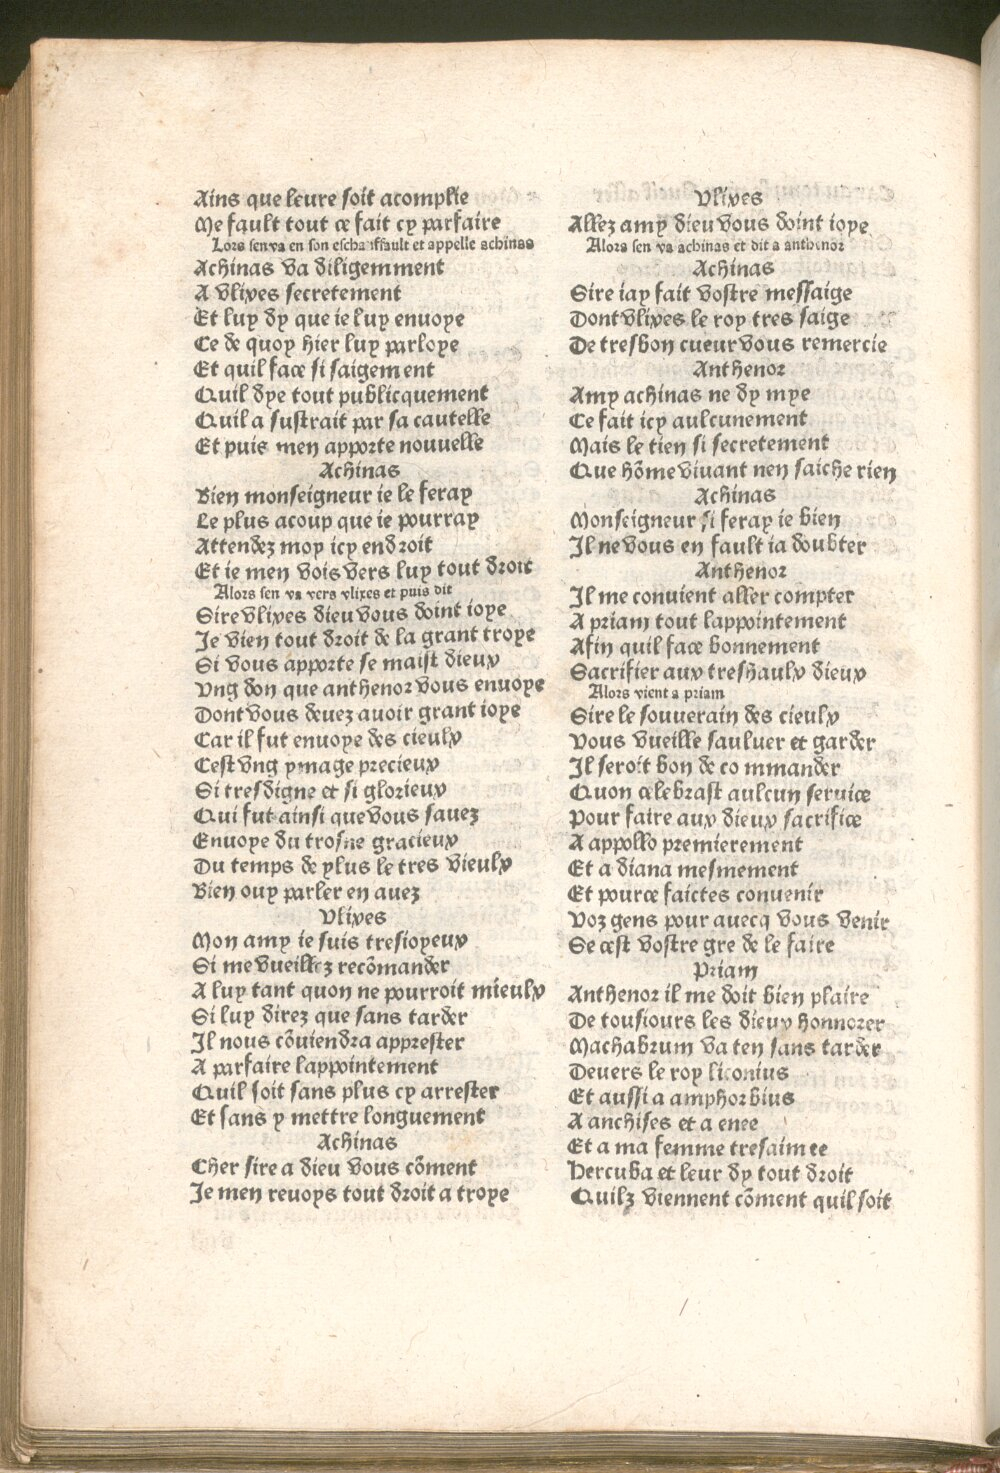 Ains que leure soit acomplie
Me fault tout ce fait cy parfaire
Lors sen va en son eschauffault et appelle achinas
Achinas va diligemment
A vlixes secretement
Et luy dy que ie luy enuoye
Ce de quoy hier luy parloye
Et quil face si saigement
Quil dye tout publicquement
Quil a sustrait par sa cautelle
Et puis men apporte nouuelle
Achinas
Bien monseigneur ie le feray
Le plus acoup que ie pourray
Attendez moy icy endroit
Et ie men vois vers luy tout droit
Alors sen va vers vlixes et puis dit
Sire vlixes dieu vous doint ioye
Je vien tout droit de la grant troye
Si vous apporte se maist dieux
Vng don que anthenor vous enuoye
Dont vous deuez auoir grant ioye
Car il fut enuoye des cieulx
Cest vng ymage precieux
Si tresdigne et si glorieux
Qui fut ainsi que vous sauez
Enuoye du trosne gracieux
Du temps de ylus le tres vieulx
Bien ouy parler en auez
Vlixes
Mon amy ie suis tresioyeux
Si me vueillez recõmander
A luy tant quon ne pourroit mieulx
Si luy direz que sans tarder
Il nous cõuiendra apprester
A parfaire lappointement
Quil soit sans plus cy arrester
Et sans y mettre longuement
Achinas
Cher sire a dieu vous cõment
Je men reuoys tout droit a troye
Vlixes
Allez amy dieu vous doint ioye
Alors sen va achinas et dit a anthenor
Achinas
Sire iay fait vostre messaige
Dont vlixes le roy tres saige
De tresbon cueur vous remercie
Anthenor
Amy achinas ne dy mye
Ce fait icy aulcunement
Mais le tien si secretement
Que hõme viuant nen saiche rien
Achinas
Monseigneur si feray ie bien
Il ne vous en fault ia doubter
Anthenor
Il me conuient aller compter
A priam tout lappointement
Afin quil face bonnement
Sacrifier aux treshaulx dieux
Alors vient a priam
Sire le souuerain des cieulx
Vous vueille sauluer et garder
Il seroit bon de commander
Quon celebrast aulcun seruice
Pour faire aux dieux sacrifice
A appollo premierement
Et a diana mesmement
Et pource faictes conuenir
Voz gens pour auecq vous venir
Se cest vostre gre de le faire
Priam
Anthenor il me doit bien plaire
De tousiours les dieux honnorer
Machabrum va ten sans tarder
Deuers le roy liconius
Et aussi a amphorbius
A anchises et a enee
Et a ma femme tresaimee
Hercuba et leur dy tout droit
Quilz viennent cõment quil soit